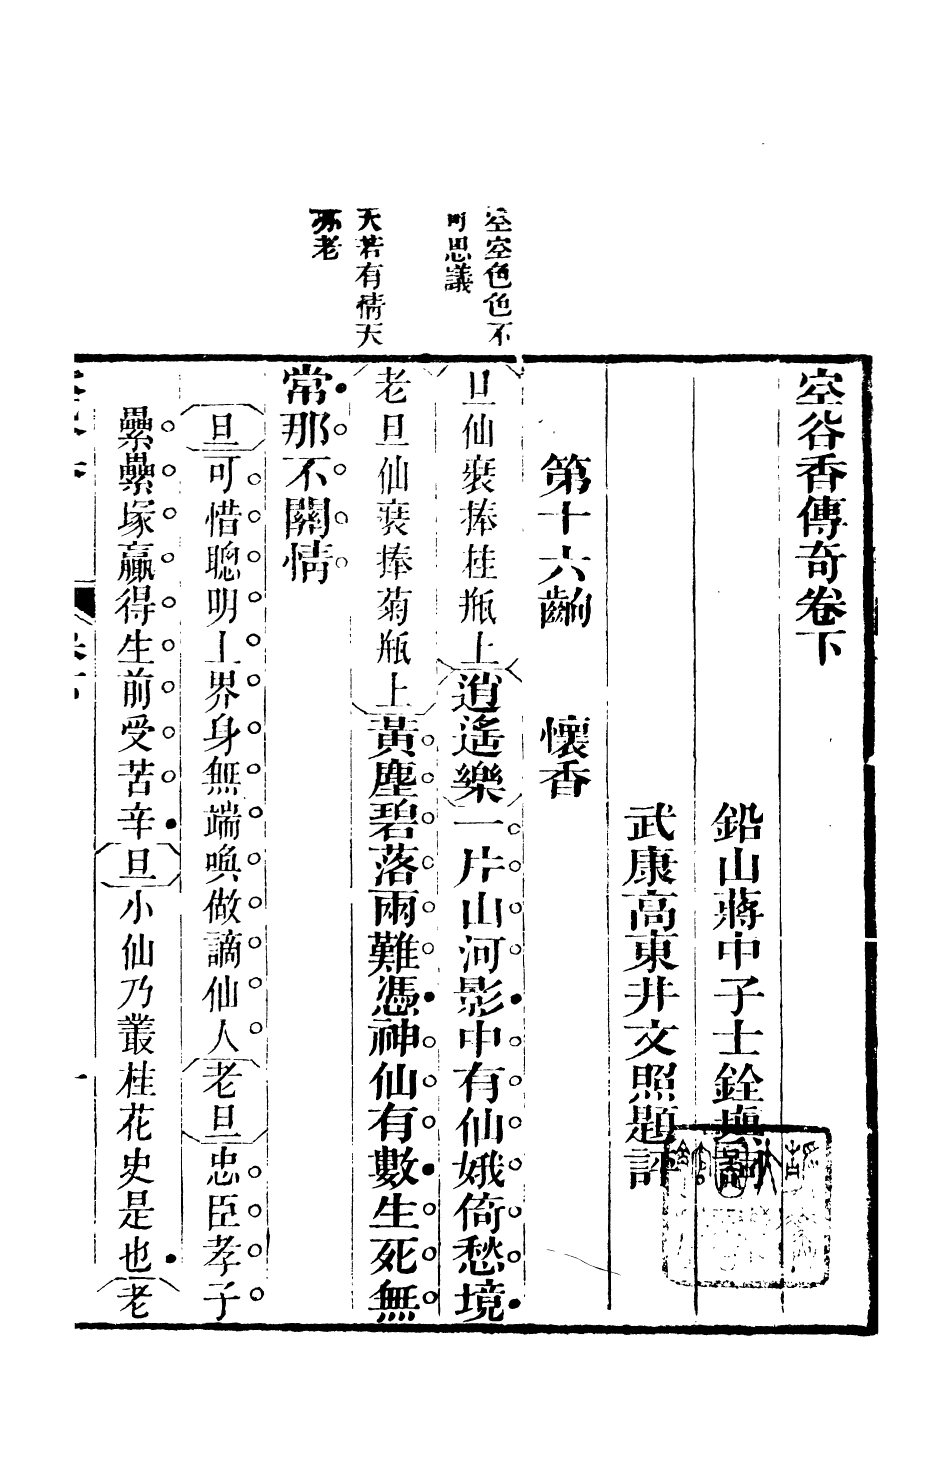 空空色色不
可思議
天若有情天
亦老
空谷香傳奇卷下
鉛山蔣中子士銓填詞
武康高東井文照題評
第十六齣　懷香
旦仙裝捧桂瓶上逍遙樂一片山河影中有仙娥倚愁境
老旦仙裝捧菊瓶上黃塵碧落兩難憑神仙有數生死無
常那不關情
旦可惜聰明上界身無端喚做謫仙人老旦忠臣孝子
纍纍塚贏得生前受苦辛旦小仙乃叢桂花史是也老